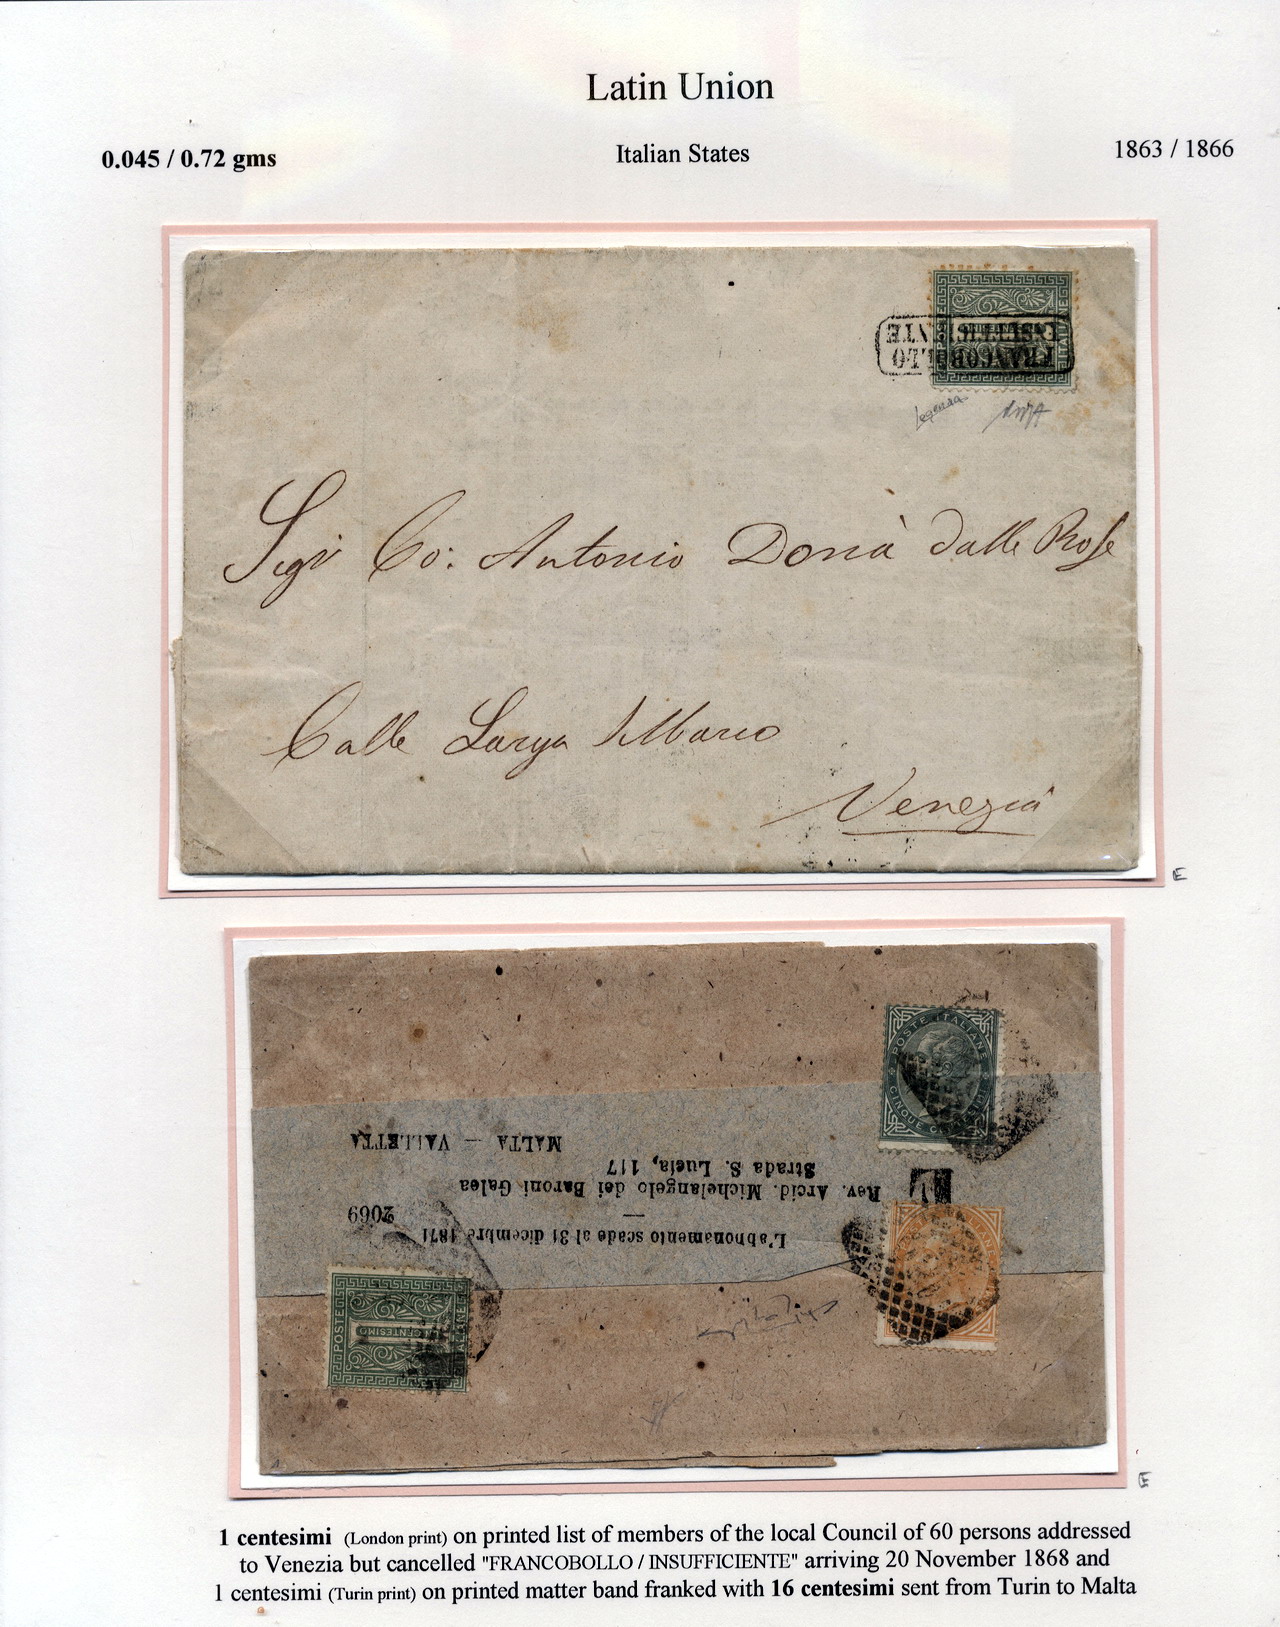 Latin Union
0.045 / 0.72 gms
Italian States
1863 / 1866
POSTE
ITALIANE
FRANCOBOLLO
INSUFFICIENTE
Sigr Co: Antonio Donà dalle Rose
Calle Larga S Marco
Venezia
E
POSTE ITALIANE
CINQUE CENTESIMI
L'abbonamento scade al 31 dicembre 1871
2069
Rev. Arcid. Michelangelo dei Baroni Galea
Strada S. Lucia, 117
MALTA — VALLETTA
POSTE
CENTESIMO
E
1 centesimi (London print) on printed list of members of the local Council of 60 persons addressed
to Venezia but cancelled "FRANCOBOLLO / INSUFFICIENTE" arriving 20 November 1868 and
1 centesimi (Turin print) on printed matter band franked with 16 centesimi sent from Turin to Malta